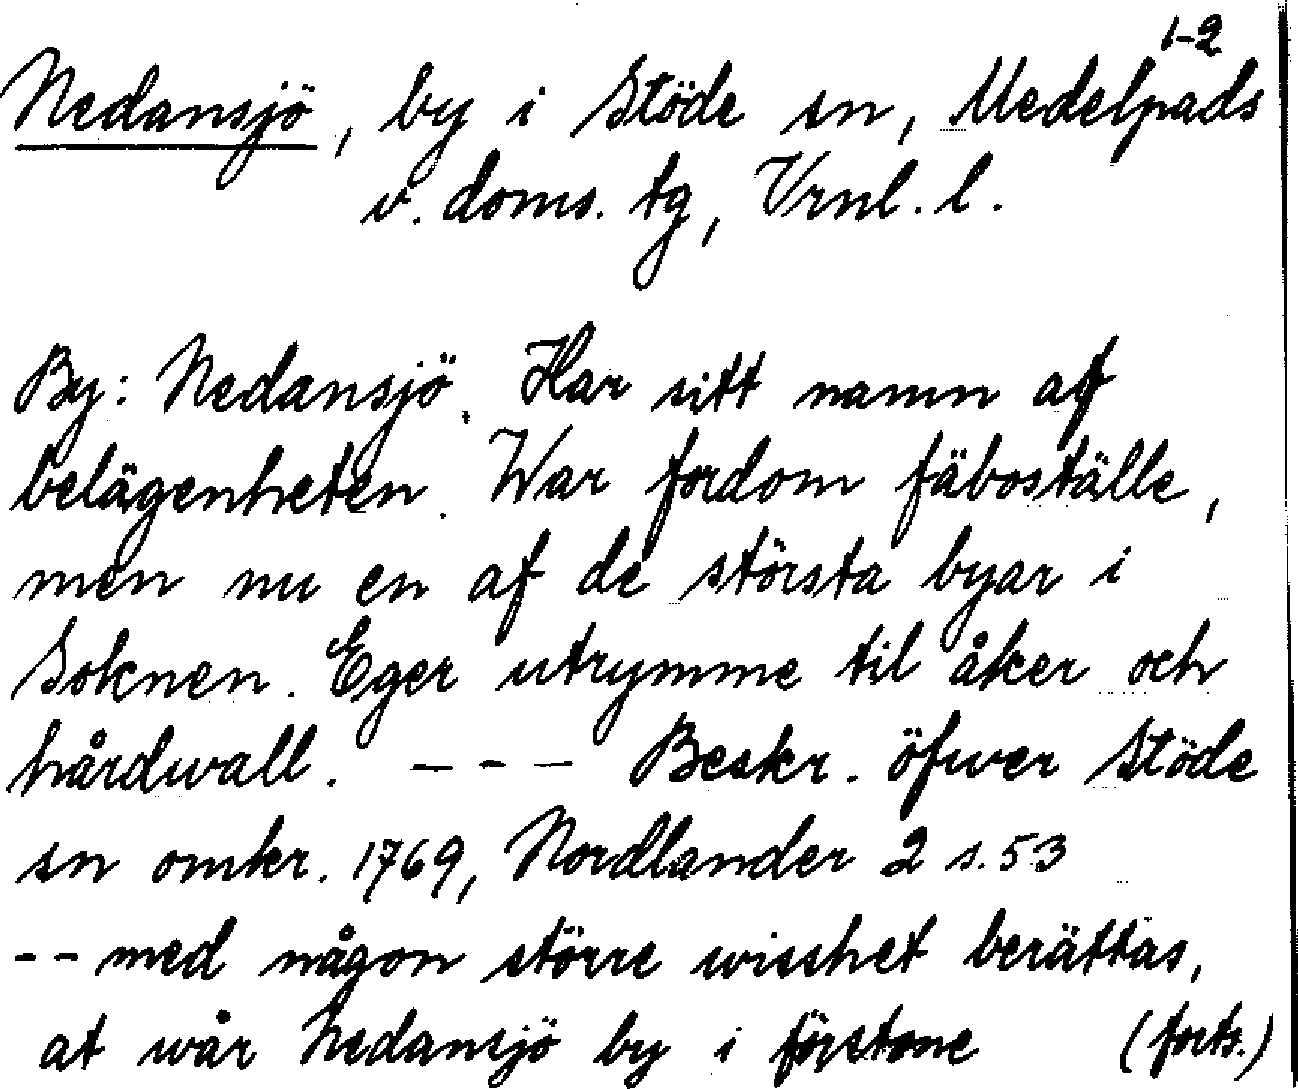 1-2
Nedansjö, by i Stöde sn, Medelpads
v. doms. tg, Vrnl. l.
By: Nedansjö. Har sitt namn af
belägenheten. War fordom fäboställe,
men nu en af de största byar i
Soknen. Eger utrymme til åker och
hårdwall. - - - Beskr. öfwer Stöde
sn omkr. 1769, Nordlander 2 s. 53
-- med någon större wisshet berättas,
at wår Nedansjö by i förstone (forts.)